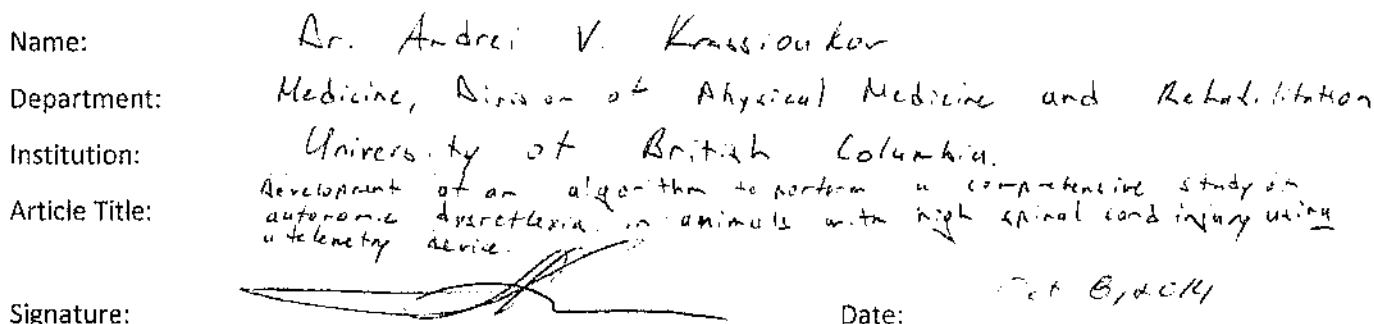 Name: Dr. Andrei V. Krassioukov
Department: Medicine, Division of Physical Medicine and Rehabilitation
Institution: University of British Columbia.
Development of an algorithm to perform a comprehensive study on
Article Title: autonomic dysreflexia in animals with high spinal cord injury using
a telemetry device.
Signature: Date: